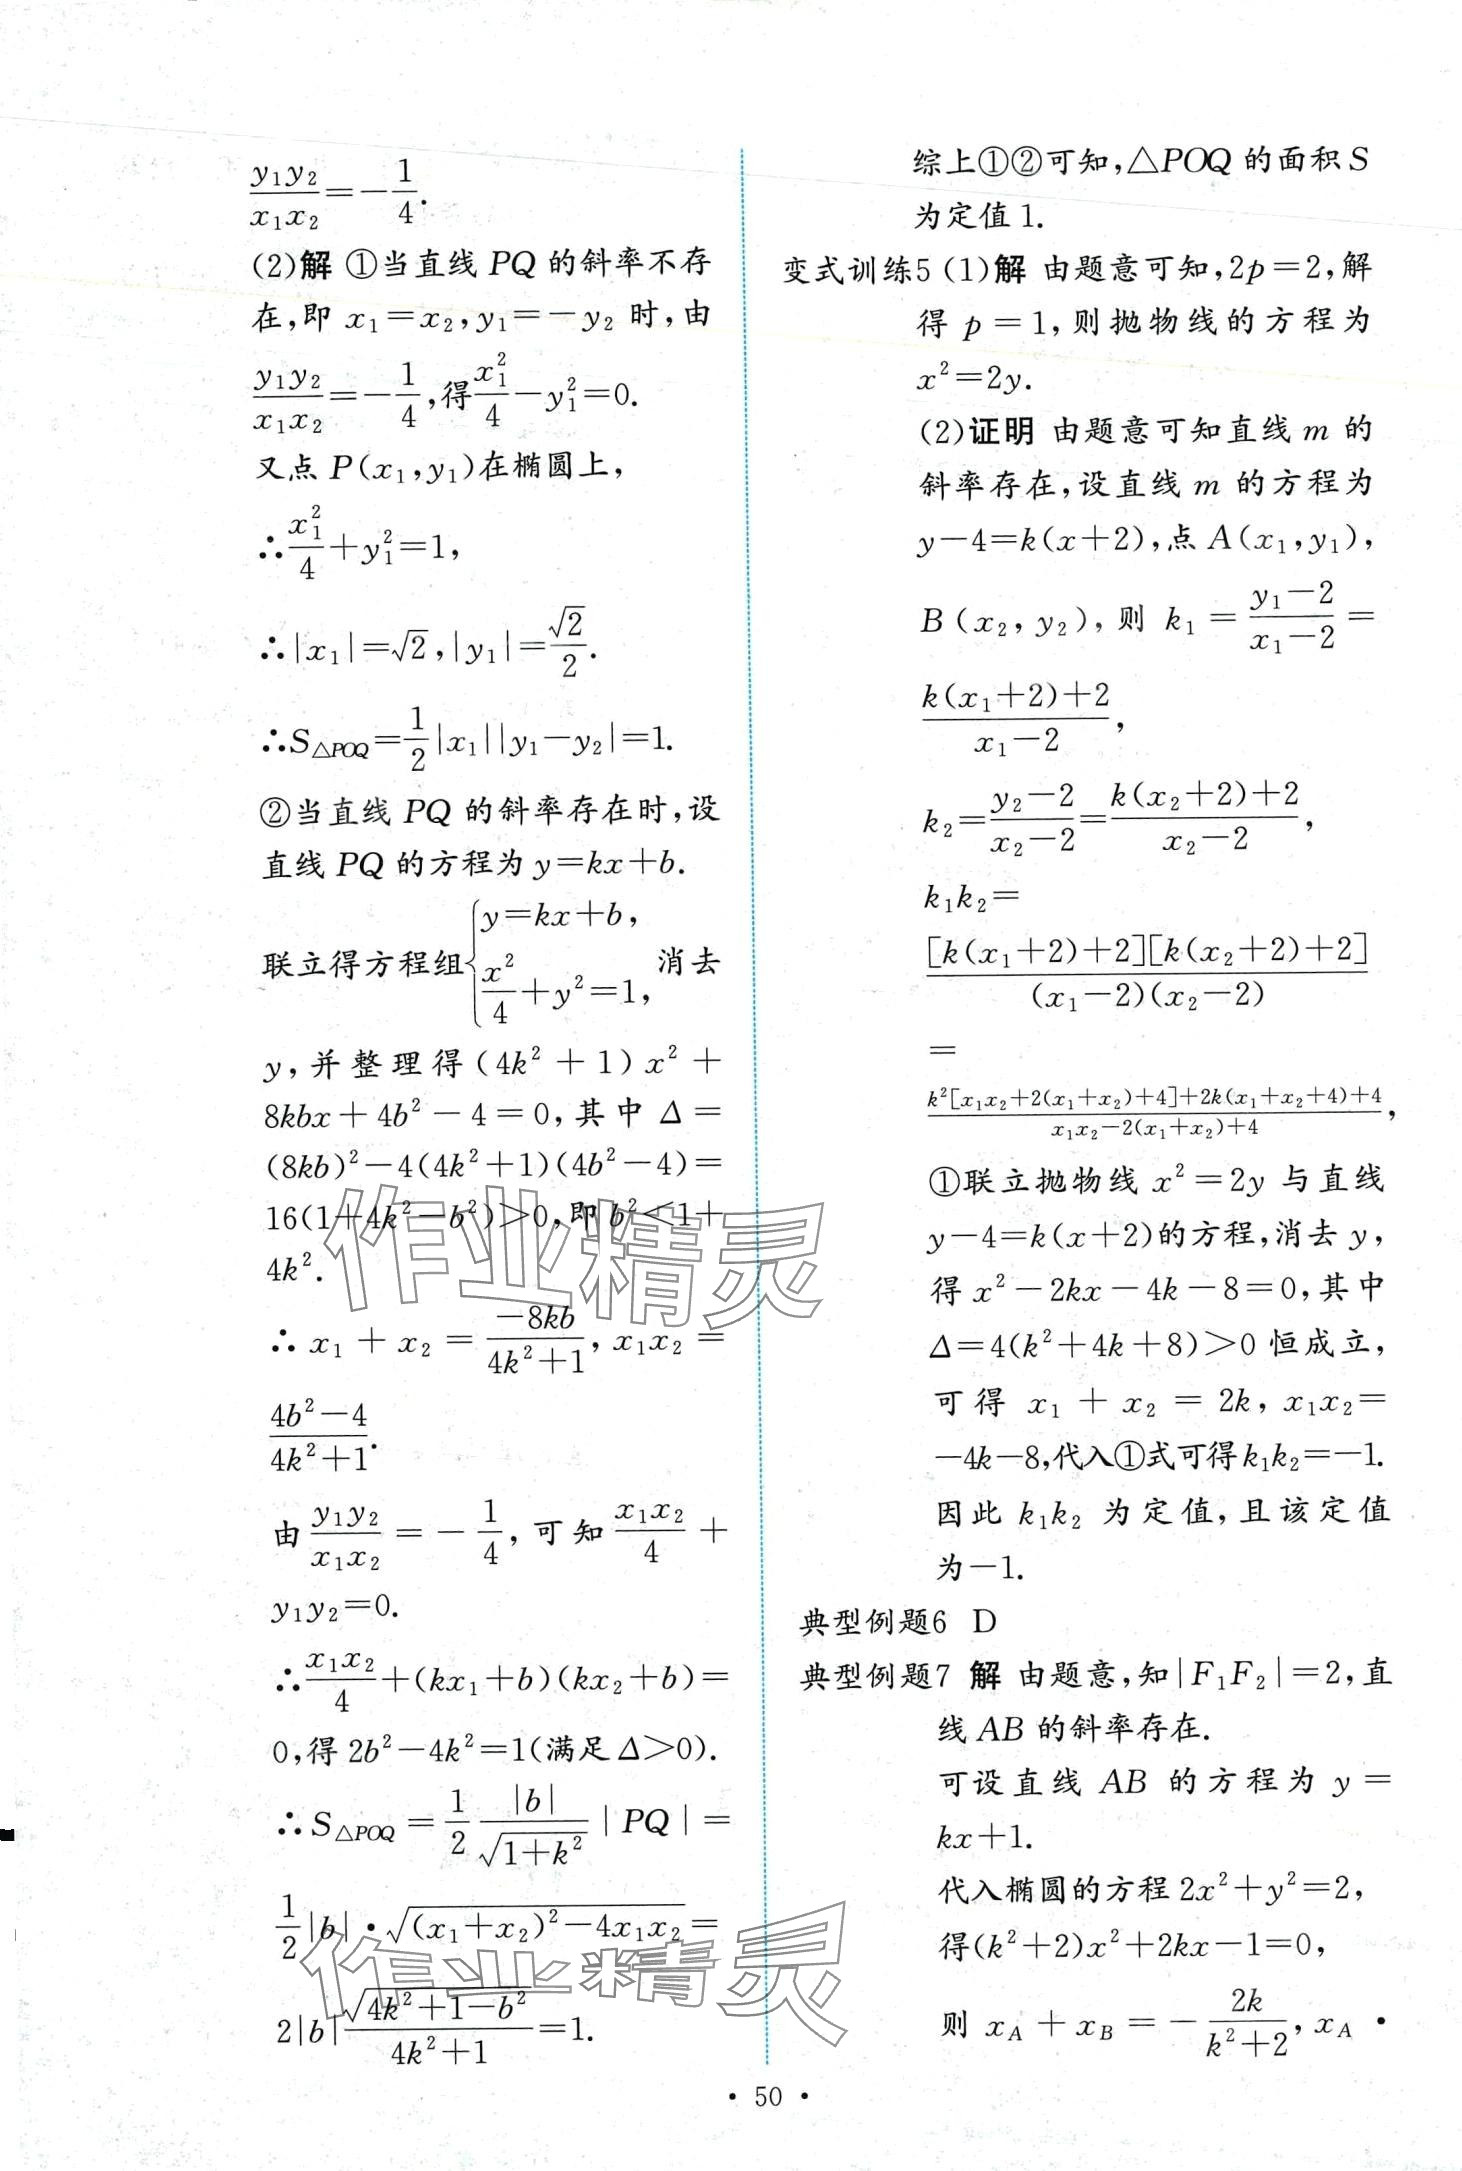 y₁y₂/x₁x₂=-1/4.
(2)解 ①当直线 PQ 的斜率不存
在,即 x₁=x₂,y₁=-y₂ 时,由
y₁y₂/x₁x₂=-1/4,得x₁²/4-y₁²=0.
又点 P(x₁,y₁)在椭圆上,
∴x₁²/4+y₁²=1,
∴|x₁|=√2,|y₁|=√2/2.
∴S△POQ=1/2|x₁||y₁-y₂|=1.
②当直线 PQ 的斜率存在时,设
直线 PQ 的方程为 y=kx+b.
联立得方程组{y=kx+b, x²/4+y²=1, 消去
y,并整理得(4k²+1)x²+
8kbx+4b²-4=0,其中 Δ=
(8kb)²-4(4k²+1)(4b²-4)=
16(1+4k²-b²)>0,即 b²<1+
4k².
∴ x₁+x₂=-8kb/(4k²+1), x₁x₂=
(4b²-4)/(4k²+1).
由 y₁y₂/x₁x₂=-1/4,可知 x₁x₂/4+
y₁y₂=0.
∴x₁x₂/4+(kx₁+b)(kx₂+b)=
0,得 2b²-4k²=1(满足 Δ>0).
∴S△POQ=1/2 |b|/√(1+k²) |PQ|=
1/2|b|·√((x₁+x₂)²-4x₁x₂)=
2|b|√(4k²+1-b²)/(4k²+1)=1.
综上①②可知,△POQ 的面积 S
为定值 1.
变式训练5 (1)解 由题意可知,2p=2,解
得 p=1,则抛物线的方程为
x²=2y.
(2)证明 由题意可知直线 m 的
斜率存在,设直线 m 的方程为
y-4=k(x+2),点 A(x₁,y₁),
B(x₂,y₂),则 k₁=(y₁-2)/(x₁-2)=
(k(x₁+2)+2)/(x₁-2),
k₂=(y₂-2)/(x₂-2)=(k(x₂+2)+2)/(x₂-2),
k₁k₂=
[k(x₁+2)+2][k(x₂+2)+2]/(x₁-2)(x₂-2)
=
(k²[x₁x₂+2(x₁+x₂)+4]+2k(x₁+x₂+4)+4)/(x₁x₂-2(x₁+x₂)+4),
①联立抛物线 x²=2y 与直线
y-4=k(x+2)的方程,消去 y,
得 x²-2kx-4k-8=0,其中
Δ=4(k²+4k+8)>0 恒成立,
可得 x₁+x₂=2k, x₁x₂=
-4k-8,代入①式可得k₁k₂=-1.
因此 k₁k₂ 为定值,且该定值
为-1.
典型例题6 D
典型例题7 解 由题意,知|F₁F₂|=2,直
线 AB 的斜率存在.
可设直线 AB 的方程为 y=
kx+1.
代入椭圆的方程 2x²+y²=2,
得(k²+2)x²+2kx-1=0,
则 x_A+x_B=-2k/(k²+2), x_A·
作业精灵
作业精灵
• 50 •